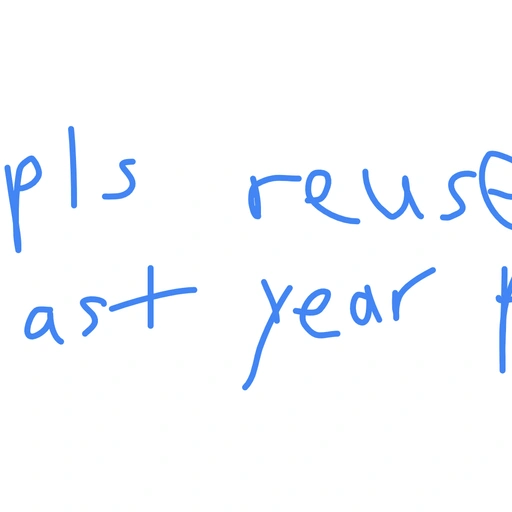 pls reuse
ast year